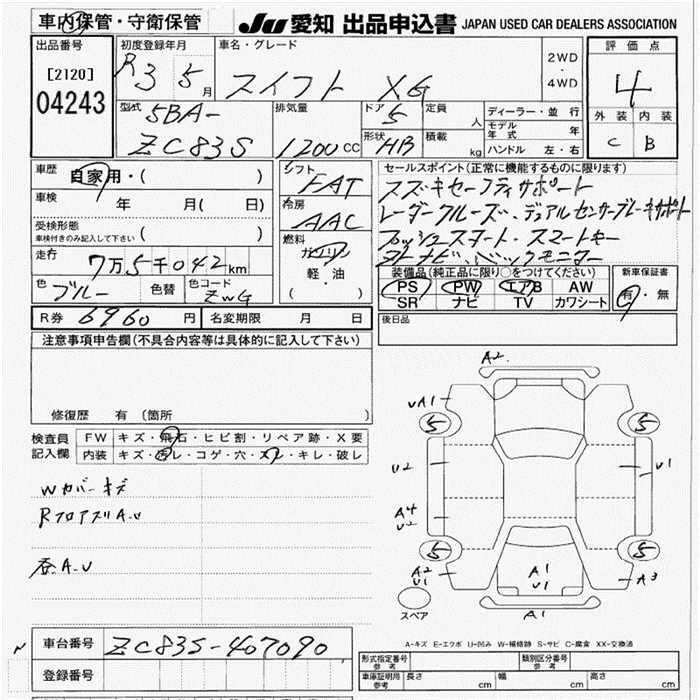 車内保管・守衛保管
JU 愛知 出品申込書 JAPAN USED CAR DEALERS ASSOCIATION
出品番号
[2120]
04243
初度登録年月
R3 5月
車名・グレード
スイフト XG
2WD
・
4WD
評価点
4
外装 内装
C B
型式
5BA-
ZC83S
排気量
1200cc
ドア
5
形状
HB
定員
人
積載
kg
ディーラー・並行
モデル年式 年
ハンドル 左・右
車歴
自家用・( )
車検
年 月( 日)
受検形態
車検付きのみ記入して下さい( )
走行
7万5千042km
色
ブルー
色替
色コード
ZWG
シフト
FAT
冷房
AAC
燃料
ガソリン
軽・油
( )
セールスポイント(正常に機能するものに限ります)
スズキセーフティサポート
レーダークルーズ、デュアルセンサーブレーキサポート
プッシュスタート・スマートキー
ナビ、バックモニター
装備品(純正品に限り○をつけてください)
PS PW エアB AW
SR ナビ TV カワシート
新車保証書
有・無
R券 6960円
名変期限 月 日
後日品
注意事項申告欄(不具合内容等は具体的に記入して下さい)
修復歴 有(箇所
検査員
記入欄
FW キズ・飛石・ヒビ割・リペア跡・X要
内装 キズ・汚レ・コゲ・穴・スレ・キレ・破レ
Wカバーキズ
RフロアズリA.U
呑A.U
A2
UA1
5
5
U2
U1
A4
U2
5
5
A2
U1
A1
U1
A3
A1
スペア
A-キズ E-エクボ U-凹み W-補修跡 S-サビ C-腐食 XX-交換済
車台番号 ZC83S-407090
登録番号
形式指定番号
参考
類別区分番号
参考
車庫証明用
参考
長さ cm
幅 cm
高さ cm